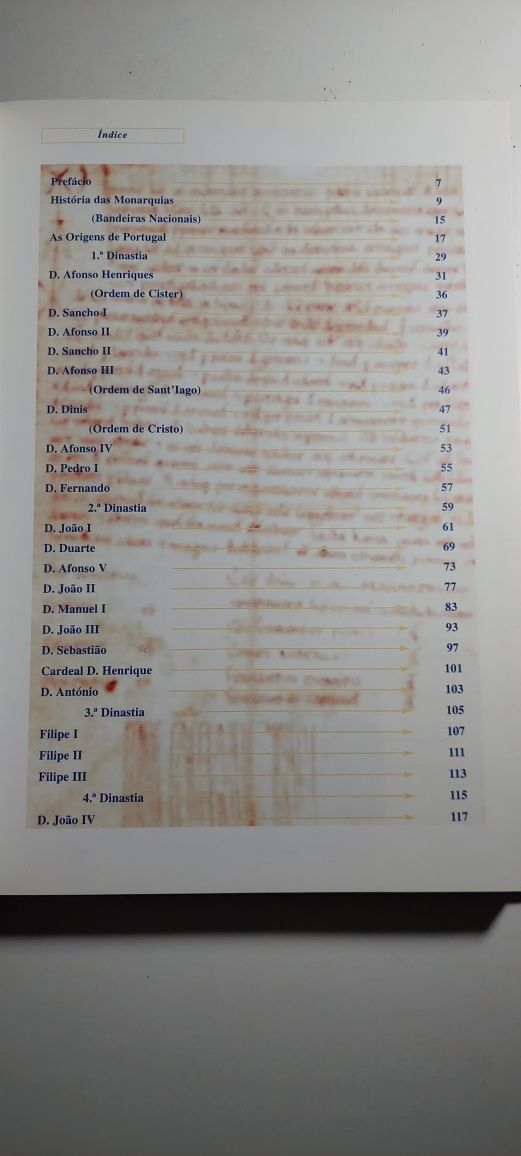 Índice
Prefácio 7
História das Monarquias 9
(Bandeiras Nacionais) 15
As Origens de Portugal 17
1.ª Dinastia 29
D. Afonso Henriques 31
(Ordem de Cister) 36
D. Sancho I 37
D. Afonso II 39
D. Sancho II 41
D. Afonso III 43
(Ordem de Sant'Iago) 46
D. Dinis 47
(Ordem de Cristo) 51
D. Afonso IV 53
D. Pedro I 55
D. Fernando 57
2.ª Dinastia 59
D. João I 61
D. Duarte 69
D. Afonso V 73
D. João II 77
D. Manuel I 83
D. João III 93
D. Sebastião 97
Cardeal D. Henrique 101
D. António 103
3.ª Dinastia 105
Filipe I 107
Filipe II 111
Filipe III 113
4.ª Dinastia 115
D. João IV 117